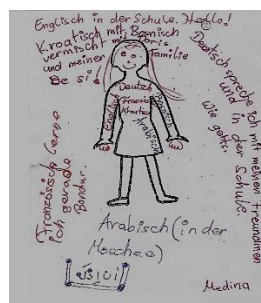 Englisch in der Schule. Hello!
Kroatisch mit Bosnisch
vermischt mit Doris
und meiner Familie
De si!
Deutsch spreche ich mit meinen freundinen
und in der Schule.
Wie gehts.
Deutsch
Englisch
Kroatisch
Bosnisch
Arabisch
(Französisch lerne
ich gerade
Bonjur.
Arabisch (in der
Moschee)
Medina